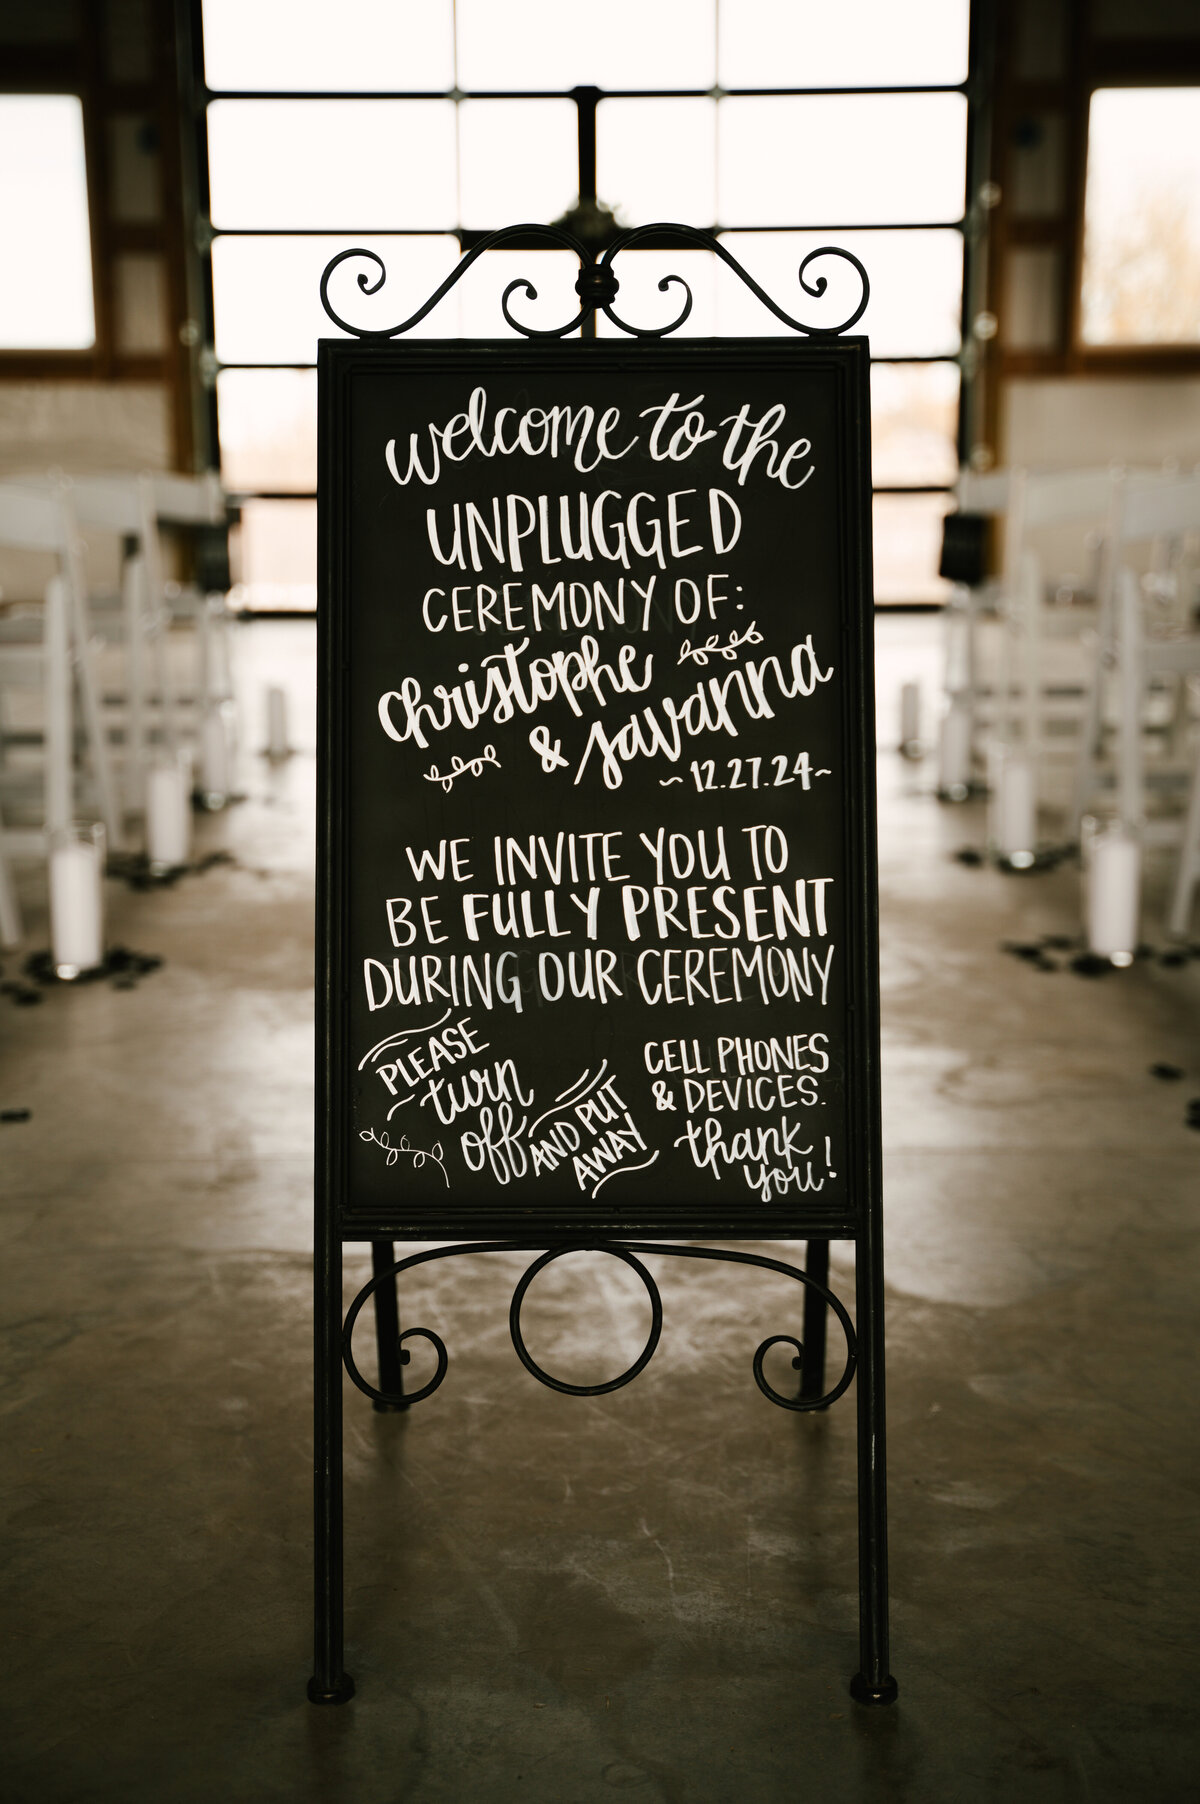 welcome to the
UNPLUGGED
CEREMONY OF:
christophe
& savanna
~12.27.24~
WE INVITE YOU TO
BE FULLY PRESENT
DURING OUR CEREMONY
PLEASE
turn
off
AND PUT
AWAY
CELL PHONES
& DEVICES.
thank
you!